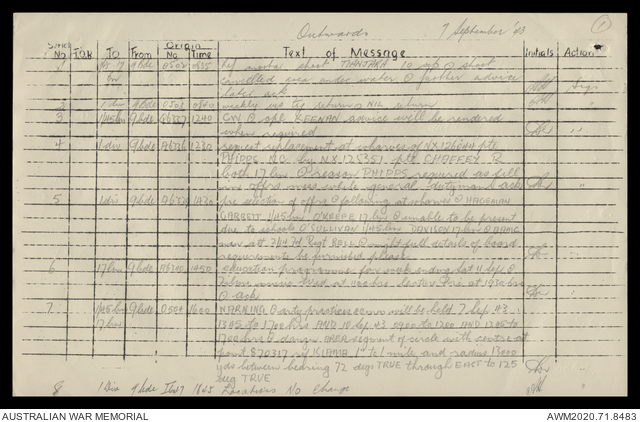 Outwards 7 September '43 1
Serial No T.O.R To From Origin No Time Text of Message Initials Action
1 17 bn 9 bde 0502 0835 TIANJARA 10 sep @ shoot
cancelled area under water @ further advice
later ack
2 1 div 9 bde 0503 0900 weekly returns @ NIL return
3 1/45 bn 9 bde A6737 1240 @ spl KEENAN advice will be rendered
when required
4 1 div 9 bde A6736 1230 request replacement at wharves of NX126044 pte
PHIPPS N.O. by NX128351 pte CHAFFEY R
both 17 bn @ reason PHIPPS required as
offrs mess while general dutyman @ ack
5 1 div 9 bde 1430 pre section of offrs @ following at wharves @ HAGEMAN
GARRETT 1/45 bn O'KEEFE 17 bn @ unable to be present
due to schools O'SULLIVAN 1/45 bn DAVISON 17 bn @ AAMC
BELL @ might full details of board
requirements be furnished please
6 17 bn 9 bde A6740 1450 education programme for 11 sep @
lecture at 1930 hrs
@ ack
7 1/45 bn 17 bn 9 bde 0504 1600 WARNING @ arty practices will be held 7 Sep 43
1305 to 1700 hrs AND 10 Sep 43 0900 to 1200 AND 1305 to
1700 hrs @ danger AREA segment of circle with centre at
point 870317 KIAMA 1" to 1 mile and radius 13000
yds between bearing 72 degs TRUE through EAST to 125
deg TRUE
8 1 Div 9 bde 1845 Locations No Change
AUSTRALIAN WAR MEMORIAL AWM2020.71.8483